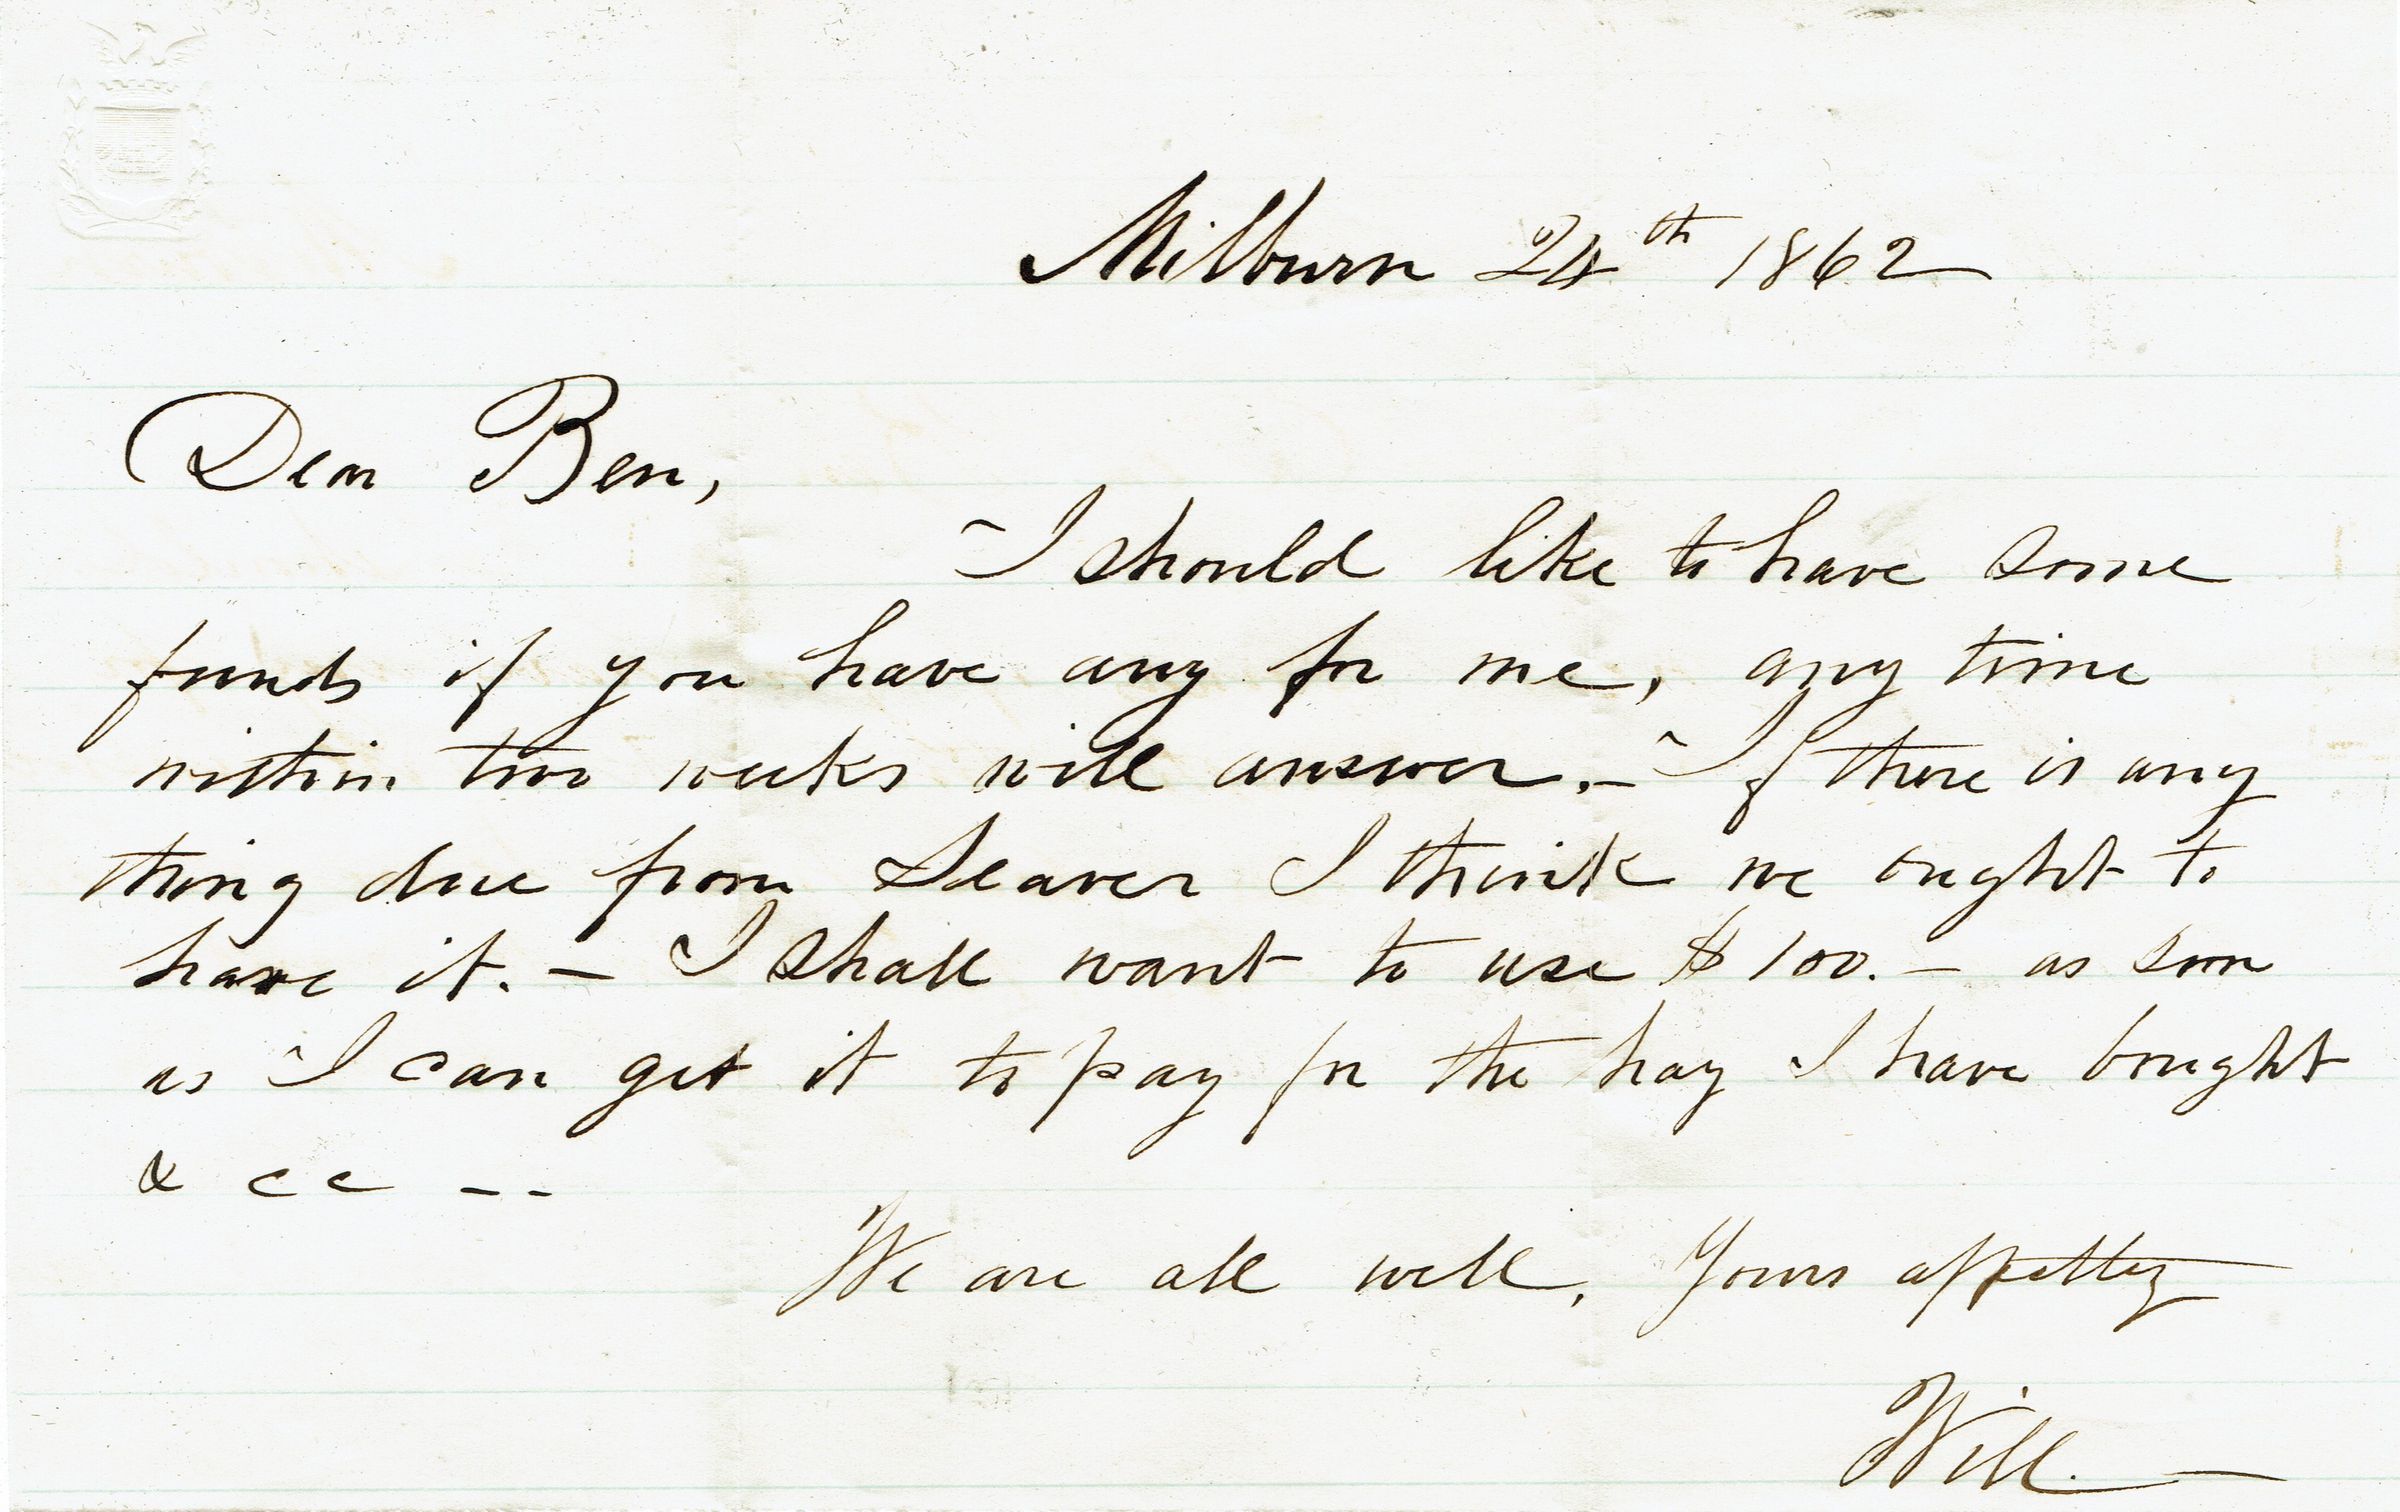 Milburn 24th 1862
Dear Ben,
I should like to have some
funds if you have any for me, any time
within two weeks will answer. – If there is any
thing due from Seaver I think we ought to
have it. – I shall want to use $100. – as soon
as I can get it to pay for the hay I have bought
& c c – –
We are all well. Yours affetly
Will. –